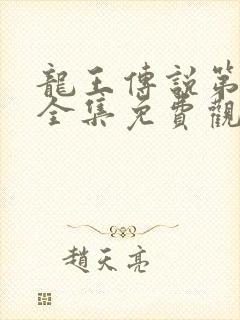 龍王傳說第
全集免費觀
趙天亮